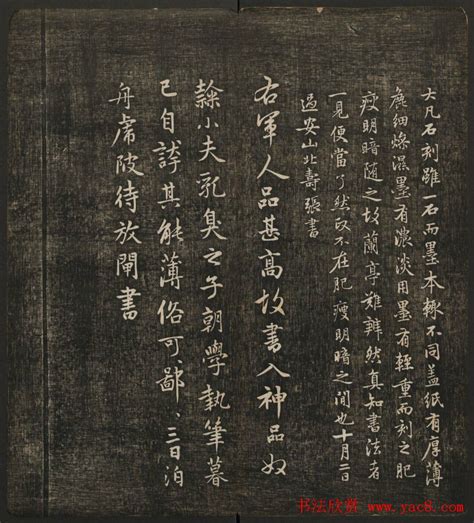 大凡石刻雖一石而墨本輒不同盖紙有厚薄
麁細燥濕墨有濃淡用墨有輕重而刻之肥
瘦明暗随之故蘭亭難辨然真知書法者
一見便當了然政不在肥瘦明暗之間也十月二日
過安山北壽張書
右軍人品甚高故書入神品奴
隸小夫乳臭之子朝學執筆暮
已自誇其能薄俗可鄙、三日泊
舟虎陂待放閘書
书法欣赏 www.yac8.com